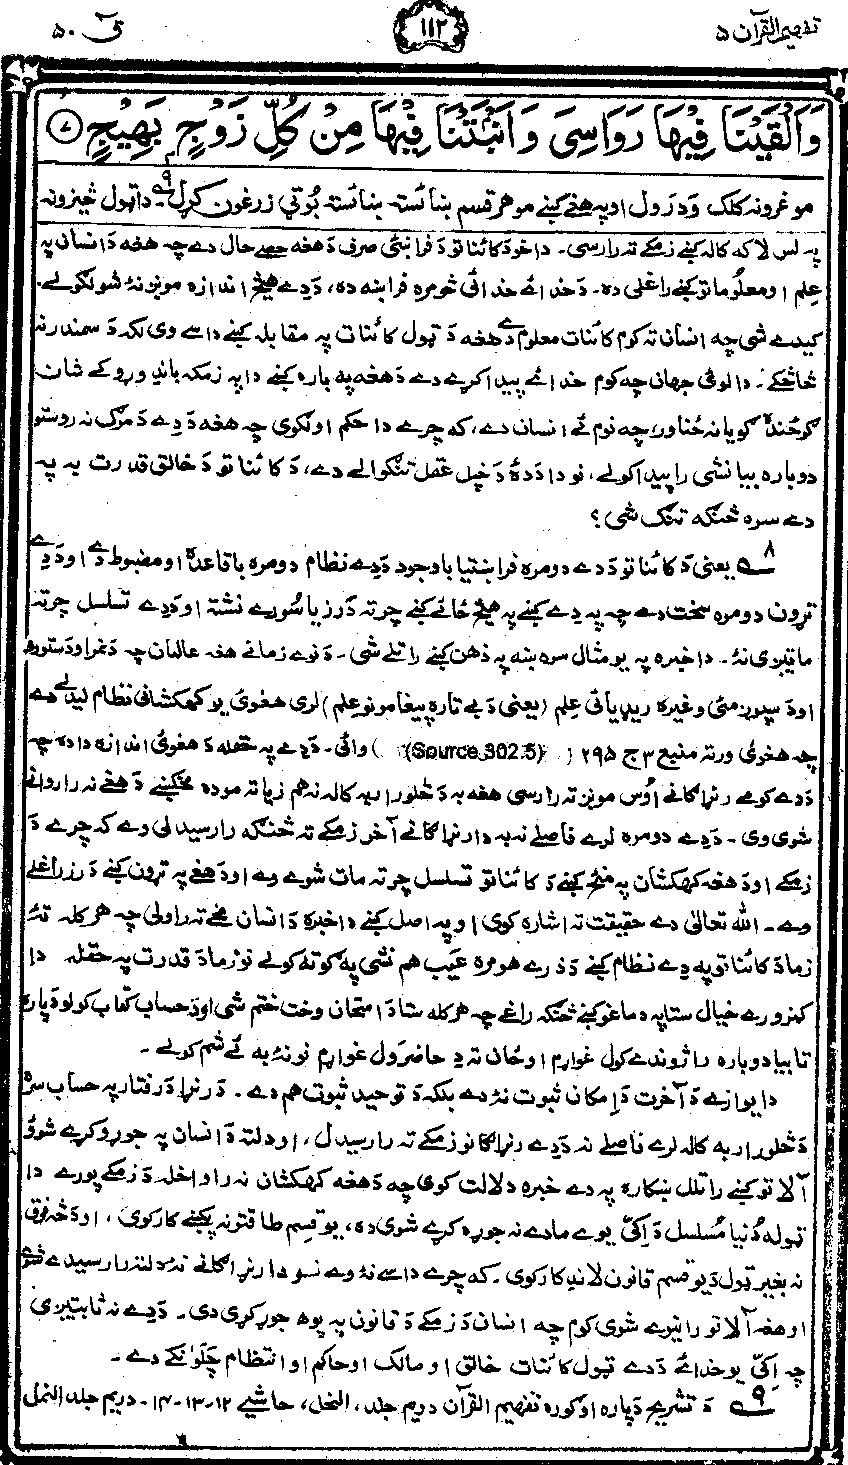 تفهیم القرآن ۵ ۱۱۲ قٓ ۵۰
وَاَلْقَيْنَا فِيْهَا رَوَاسِيَ وَاَنْۢبَتْنَا فِيْهَا مِنْ كُلِّ زَوْجٍۭ بَهِيْجٍ ۷
موغرونه کلک ودرول او په هغې کښې مو هر قسم ښائسته ښائسته بوټي زرغون کړل ۹ـه داټول څیزونه
په لس لاکه کاله کښې زمکې ته رارسی۔ داخود کائناتو د فراخئی صرف دهغه حصے حال دے چه هغه د انسان په
علم او معلوماتو کښې راغلی ده۔ دخدائے خدائی څومره فراخه ده، ددے هیڅ اندازه مونږ نۀ شو لګولے۔
کیدے شی چه انسان ته کوم کائنات معلوم دے هغه د ټول کائنات په مقابله کښې داسے وی لکه د سمندر نه
څاڅکے۔ دا لوئی جهان چه کوم خدائے پیدا کړے دے دهغه په باره کښې دا په زمکه باندِ وړوکے شان
ګویا نه ځناور، چه نوم ئے انسان دے، که چرے دا حکم اولګوی چه هغه ددے د مرګ نه روستو
دوباره بیا نشی راپیدا کولے، نو دا ددۀ دخپل عقل تنګوالے دے، د کائناتو د خالق قدرت به په
دے سره څنګه تنګ شی؟
۸ـه یعنی د کائناتو ددے دومره فراختیا باوجود ددے نظام دومره باقاعده او مضبوط دے او ددے
تړون دومره سخت دے چه په دے کښې په هیڅ ځائے کښې چرته درز یا سُورے نشته او ددے تسلسل چرته
ماتیږی نۀ۔ دا خبره په یو مثال سره ښه په ذهن کښې راتلے شی۔ د نوے زمانے هغه عالمان چه د نمر او د ستورو
او د سپوږمئ وغیره ریډیائی علم (یعنی د بے تاره پیغامونو علم) لری هغوئ یو کهکشانی نظام لیدلے دے
چه هغوئ ورته منبع ۳ ج ۲۹۵ (Source 302.5) وائی۔ ددے په حقله د هغوئ اندازه دا ده چه
ددے کومے رنړاګانے اوس مونږ ته رارسی هغه به د څلور اربه کاله نه هم زیاته موده مخکښې دهغے نه را روانے
شوی وی۔ ددے دومره لرے فاصلے نه به دا رنړاګانے آخر زمکے ته څنګه رارسیدلی وے که چرے د
زمکے او دهغه کهکشان په منځ کښې د کائناتو تسلسل چرته مات شوے وے او دهغے په تړون کښې درز راغلے
وے۔ الله تعالیٰ دے حقیقت ته اشاره کوی او په اصل کښې دا خبره د انسان مخے ته راولی چه هرکله تۀ
زما د کائناتو په دے نظام کښې د ذرے هومره عیب هم نشی په ګوته کولے نو زما د قدرت په حقله دا
کمزورے خیال ستا په دماغو کښې څنګه راغے چه هرکله ستا د امتحان وخت ختم شی او د حساب کتاب کولو دپاره
تا بیا دوباره را ژوندے کول غواړم او ځان ته دِ حاضرول غواړم نو نۀ به ئے شم کولے۔
دا یوازے د آخرت د اِمکان ثبوت نۀ دے بلکه د توحید ثبوت هم دے۔ د رنړا د رفتار په حساب سره
د څلور اربه کاله لرے فاصلے نه ددے رنړاګانو زمکے ته رارسیدل، او دلته د انسان په جوړو کړے شوؤ
آلاتو کښې راتلل ښکاره په دے خبره دلالت کوی چه دهغه کهکشان نه را واخله د زمکے پورے دا
ټوله دُنیا مُسلسل د اکئ یوے مادے نه جوړه کړے شوی ده، یو قسم طاقتونه پکښې کار کوی، او د څه فرق
نه بغیر ټول د یو قسم قانون لاندِ کار کوی۔ که چرے داسے نۀ وے نو دا رنړاګانے نۀ دلته رارسیدے شوے
او هغه آلاتو رانیوے شوی کوم چه انسان د زمکے د قانون په پوهه جوړ کړی دی۔ ددے نه ثابتیږی
چه اکئ یو خدائے ددے ټول کائنات خالق او مالک او حاکم او انتظام چلونکے دے۔
۹ـه د تشریح دپاره اوګوره تفهیم القرآن دویم جلد، النحل، حاشیے ۱۲-۱۳-۱۴۔ دریم جلد النمل